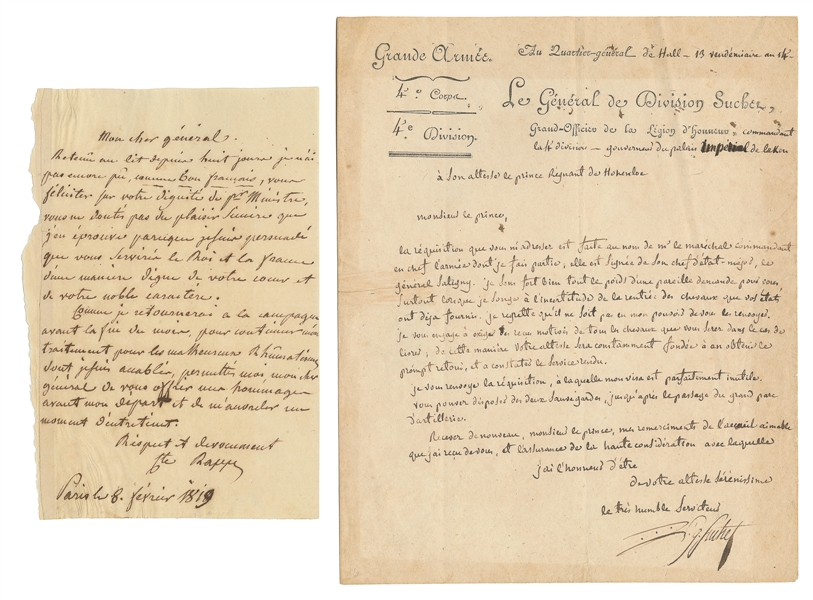 Mon cher général.
Retenu au lit depuis huit jours je n'ai
pas encore pû, comme bon français, vous
féliciter sur votre dignité de pr. Ministre,
vous ne doutés pas du plaisir sincère que
j'en éprouve parceque je suis persuadé
que vous servirés le Roi et la france
d'une manière digne de votre cœur et
de votre noble caractère.
Comme je retournerai a la campagne
avant la fin du mois, pour continuer mon
traitement pour les malheureux Rhûmatismes
dont je suis accablé, permettés moi mon cher
général de vous offrir mes hommages
avant mon départ et de m'accorder un
moment d'entretient.
Respect et devouement
Cte Rapp
Paris le 8. février 1819
Grande Armée.
Au Quartier-général de Hall - 13 vendémiaire an 14.
4e Corps.
4e Division.
Le Général de Division Suchet,
Grand-Officier de la Légion d'Honneur, commandant
la 4e division - gouverneur du palais Impérial de
à Son altesse le prince Régnant de Hohenloe
monsieur le prince,
la réquisition que vous m'adressez est faite au nom de mr. le maréchal commandant
en chef l'armée dont je fais partie, elle est signée de Son chef d'état-major, le
général Saligny. je Sens fort bien tout le poids d'une pareille demande pour vous,
Surtout lorsque je Songe à l'incertitude de la rentrée des chevaux que vos états
ont déja fournis. je regrette qu'il ne Soit pas en mon pouvoir de vous les renvoyer.
je vous engage à exiger des reçus motivés de tous les chevaux que vous Serez dans le cas de
livrer; de cette manière Votre altesse Sera constamment fondée à en obtenir le
prompt retour, et a constater le Service rendu.
je vous renvoye la réquisition, à laquelle mon visa est parfaitement inutile.
vous pouvez disposer des deux Sauvegardes, jusqu'après le passage du grand parc
d'artillerie.
Recevez de nouveau, monsieur le prince, mes remerciments de l'accueil aimable
que j'ai reçu de vous, et l'assurance de la haute considération avec laquelle
j'ai l'honneur d'être
de votre altesse Sérénissime
le très humble Serviteur
L. G. Suchet